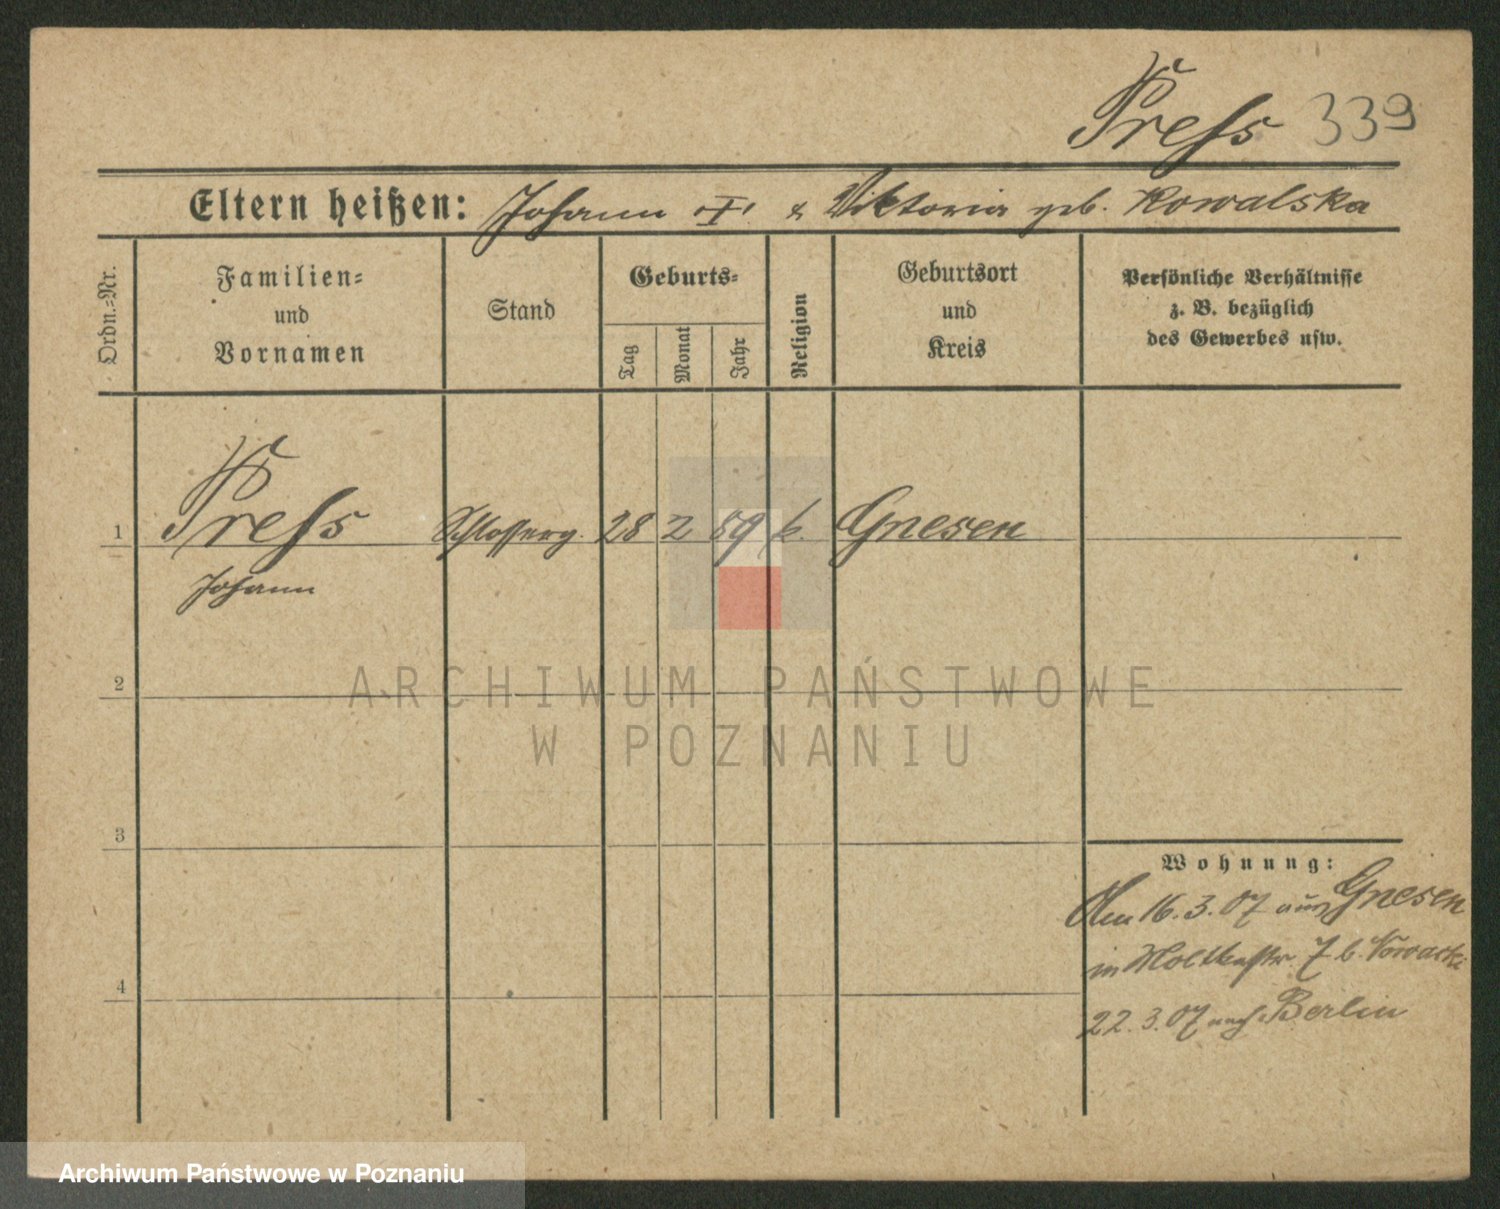 Press 339
Eltern heißen: Johann I. & Viktoria geb. Kowalska
Ordn.-Nr.
Familien-
und
Vornamen
Stand
Geburts-
Tag
Monat
Jahr
Religion
Geburtsort
und
Kreis
Persönliche Verhältnisse
z. B. bezüglich
des Gewerbes usw.
1 Press Schlosserg. 28 2 89 k. Gnesen
Johann
2
ARCHIWUM PAŃSTWOWE
W POZNANIU
3
Wohnung:
Am 16.3.07 aus Gnesen
in Moltkestr. 7 b. Nowacki
4
22.3.07 nach Berlin
Archiwum Państwowe w Poznaniu